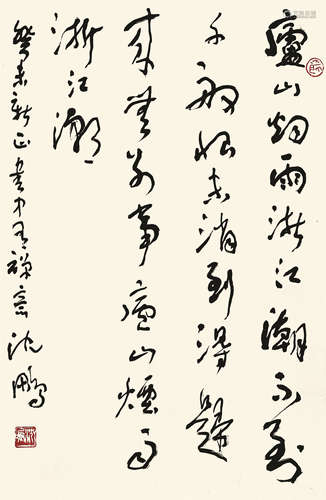 廬山烟雨浙江潮不到
千般恨未消到得歸
來無別事廬山煙雨
浙江潮
癸未新正書中有禪意沈鵬